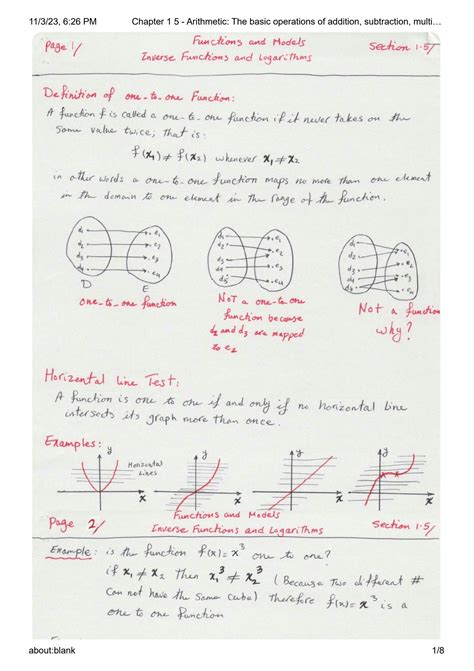 11/3/23, 6:26 PM
Chapter 1 5 - Arithmetic: The basic operations of addition, subtraction, multi…
Page 1/
Functions and Models
Section 1.5/
Inverse Functions and Logarithms
Definition of one-to-one Function:
A function f is called a one-to-one function if it never takes on the
same value twice; that is:
f(x₁) ≠ f(x₂) whenever x₁ ≠ x₂
in other words a one-to-one function maps no more than one element
in the domain to one element in the range of the function.
d₁ d₂ d₃ d₄
e₁ e₂ e₃ e₄
D E
one-to-one function
d₁ d₂ d₃ d₄ d₅
e₁ e₂ e₃ e₄
NOT a one-to-one
function because
d₂ and d₃ are mapped
to e₂
d₁ d₂ d₃ d₄
e₁ e₂ e₃ e₄
Not a function
why?
Horizental line Test:
A function is one to one if and only if no horizontal line
intersects its graph more than once.
Examples:
y x
Horizontal
Lines
y x
y x
y x
Functions and Models
Page 2/
Inverse Functions and Logarithms
Section 1.5/
Example: is the function f(x)=x³ one to one?
if x₁ ≠ x₂ Then x₁³ ≠ x₂³ (Because Two different #
Can not have the same cube) Therefore f(x)=x³ is a
one to one function
about:blank
1/8